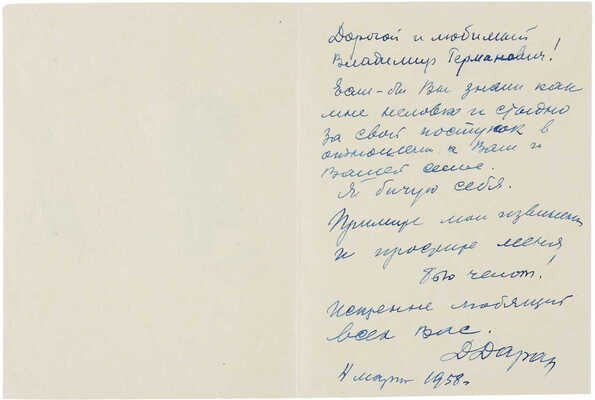 Дорогой и любимый
Владимир Германович!
Если-бы Вы знали как
мне неловко и стыдно
за свой поступок в
отношении к Вам и
Вашей семье.
Я бичую себя.
Примите мои извинения
и простите меня
Бью челом!
Искренне любящий
всех Вас.
ДДаран
4 март 1958 г